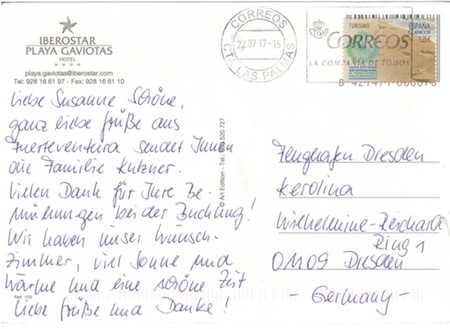 IBEROSTAR
PLAYA GAVIOTAS
HOTEL
playa.gaviotas@iberostar.com
Tel: 928 16 61 97 - Fax: 928 16 61 10
CORREOS
CTA LAS PALMAS
TURISMO
ESPAÑA
CORREOS
LA COMPAÑÍA DE TODOS
Liebe Susanne Schöne,
ganz liebe Grüße aus
Fuerteventura sendet Ihnen
die Familie Kutzner.
Vielen Dank für Ihre Be-
mühungen bei der Buchung!
Wir haben unser Wunsch-
zimmer, viel Sonne und
Wärme und eine schöne Zeit
Liebe Grüße und Danke!
© Art Edition - Tel.
Flughafen Dresden
Karolina
Wilhelmine-Reichard
Ring 1
01109 Dresden
- Germany -
Ref. 199